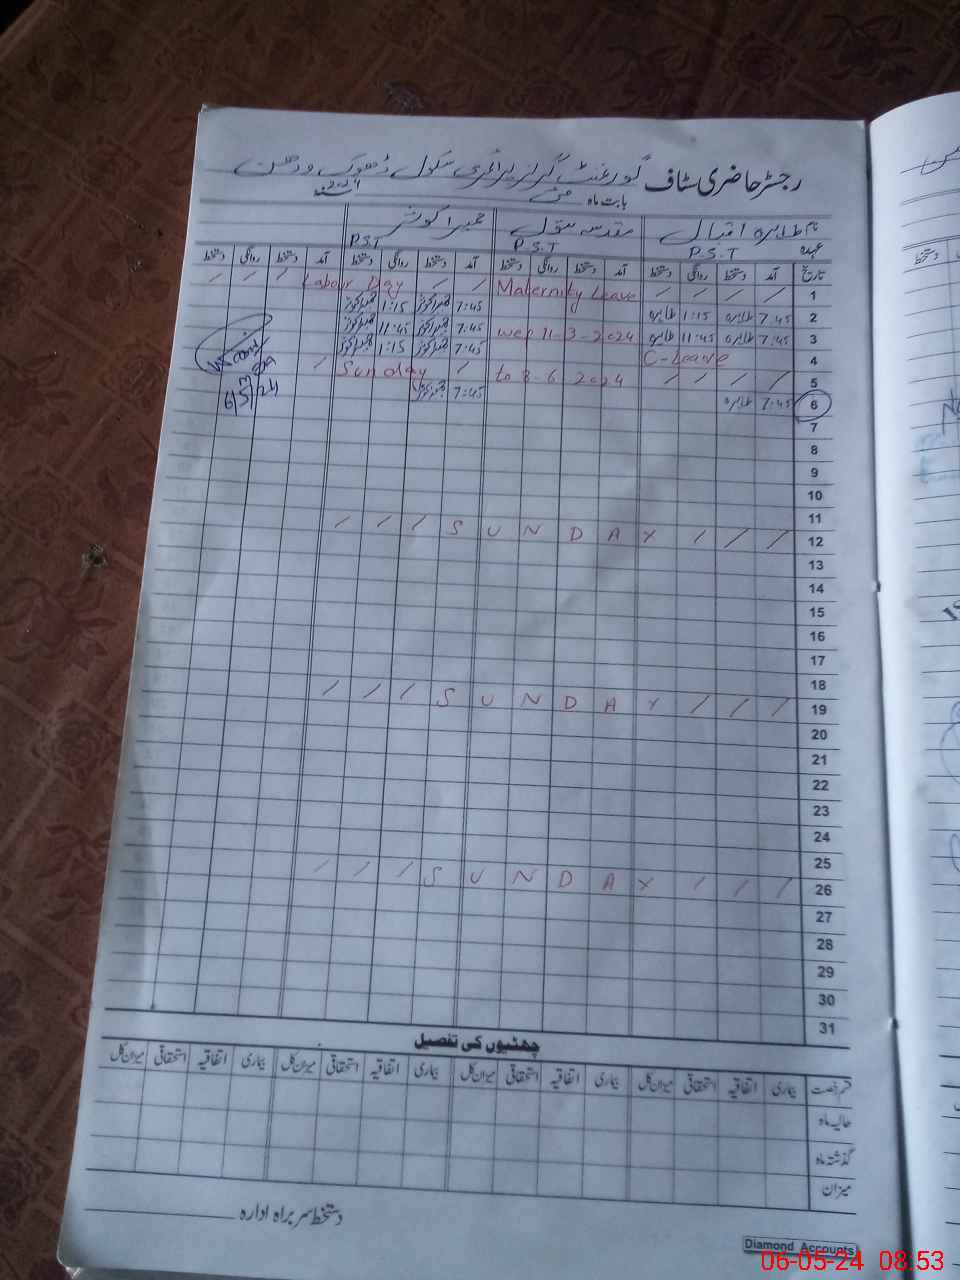 رجسٹر حاضری سٹاف گورنمنٹ گرلز پرائمری سکول ڈھوک
بابت ماہ مئی 2024
نام طاہرہ اقبال مقدسہ بتول حمیرا کوثر
عہدہ P.S.T P.S.T P.S.T
تاریخ آمد دستخط روانگی دستخط آمد دستخط روانگی دستخط آمد دستخط روانگی دستخط دستخط روانگی دستخط
1 / / / / Maternity Leave / / Labour Day / / /
2 7:45 طاہرہ 1:15 طاہرہ 7:45 حمیرا کوثر 1:15 حمیرا کوثر
3 7:45 طاہرہ 11:45 طاہرہ wef 11-3-2024 7:45 حمیرا کوثر 11:45 حمیرا کوثر
4 C-Leave 7:45 حمیرا کوثر 1:15 حمیرا کوثر
5 / / / / to 8-6 2024 / Sunday /
6 7:45 طاہرہ 7:45 حمیرا کوثر 6/5/24
7
8
9
10
11
12 / / / S U N D A Y / / /
13
14
15
16
17
18
19 / / / S U N D A Y / / /
20
21
22
23
24
25
26 / / / S U N D A Y / / /
27
28
29
30
31
چھٹیوں کی تفصیل
قسم رخصت بیماری اتفاقیہ استحقاقی میزان کل بیماری اتفاقیہ استحقاقی میزان کل بیماری اتفاقیہ استحقاقی میزان کل بیماری اتفاقیہ استحقاقی میزان کل
حالیہ ماہ
گذشتہ ماہ
میزان
دستخط سربراہ ادارہ
Diamond Accounts
06-05-24 08.53